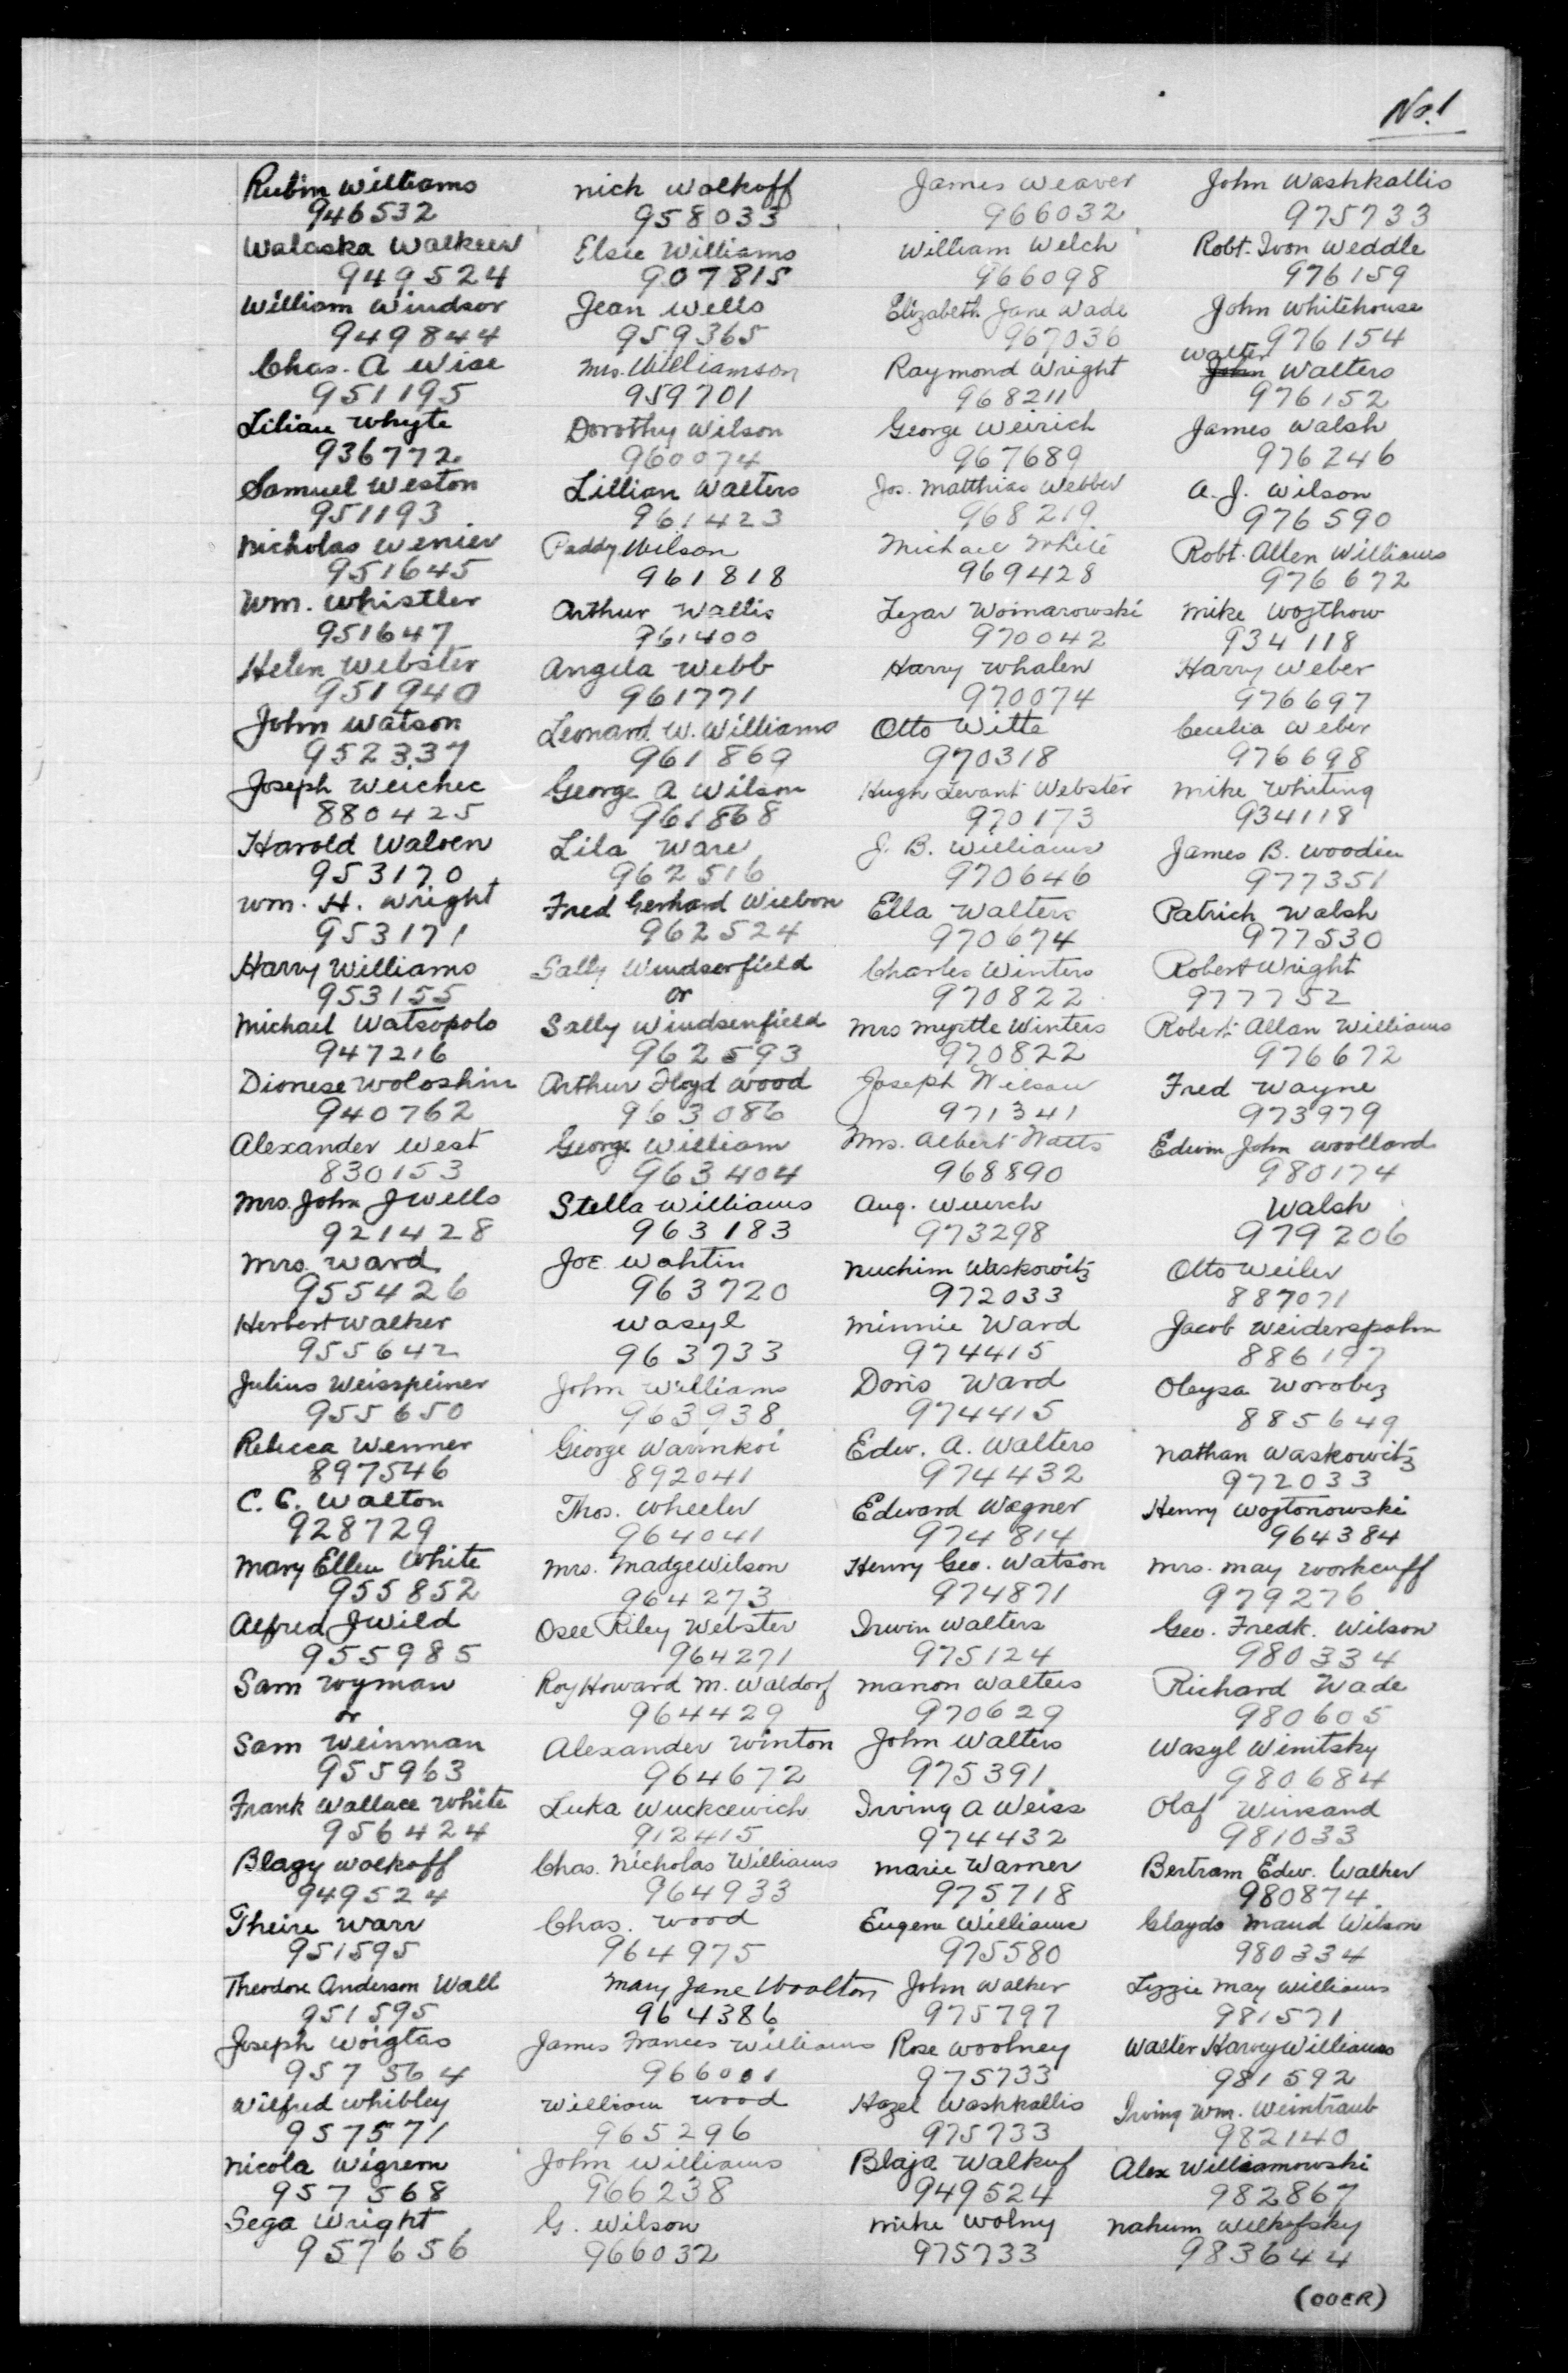 No. 1
Rubin Williams
946532
Walaska Walkeew
949524
William Windsor
949844
Chas. A Wise
951195
Lilian Whyte
936772
Samuel Weston
951193
Nicholas Wenier
951645
Wm. Whistler
951647
Helen Webster
951940
John Watson
952337
Joseph Weichec
880425
Harold Walven
953170
Wm. H. Wright
953171
Harry Williams
953155
Michael Watsopolo
947216
Dionese Woloshin
940762
Alexander West
830153
Mrs. John J Wells
921428
Mrs. Ward
955426
Herbert Walker
955642
Julius Weisspeiner
955650
Rebecca Wenner
897546
C. C. Walton
928729
Mary Ellen White
955852
Alfred J Wild
955985
Sam Wyman
or
Sam Weinman
955963
Frank Wallace White
956424
Blagy Walkoff
949524
Theire Warr
951595
Theodore Anderson Wall
951595
Joseph Woigtas
957564
Wilfred Whibley
957571
Nicola Wigrem
957568
Sega Wright
957656
Nick Walkoff
958033
Elsie Williams
907815
Jean Wells
959365
Mrs. Williamson
959701
Dorothy Wilson
960074
Lillian Walters
961423
Paddy Wilson
961818
Arthur Wallis
961400
Angela Webb
961771
Leonard W. Williams
961869
George A Wilson
961868
Lila Ware
962516
Fred Gerhard Wiebon
962524
Sally Windserfield
or
Sally Windsenfield
962593
Arthur Floyd Wood
963086
George William
963404
Stella Williams
963183
Joe Wahtin
963720
Wasyl
963733
John Williams
963938
George Warinkoi
892041
Thos. Wheeler
964041
Mrs. Madge Wilson
964273
Osee Riley Webster
964271
Roy Howard M. Waldorf
964429
Alexander Winton
964672
Luka Wuckcewich
912415
Chas. Nicholas Williams
964933
Chas. Wood
964975
Mary Jane Woolton
964386
James Frances Williams
966001
William Wood
965296
John Williams
966238
G. Wilson
966032
James Weaver
966032
William Welch
966098
Elizabeth Jane Wade
967036
Raymond Wright
968211
George Weirich
967689
Jos. Matthias Webber
968219
Michael White
969428
Lezar Woinarowski
970042
Harry Whalen
970074
Otto Witte
970318
Hugh Levant Webster
970173
J. B. Williams
970646
Ella Walters
970674
Charles Winters
970822
Mrs Myrtle Winters
970822
Joseph Wilson
971341
Mrs. Albert Watts
968890
Aug. Wuerch
973298
Nuchim Waskowitz
972033
Minnie Ward
974415
Doris Ward
974415
Edw. A. Walters
974432
Edward Wagner
974814
Henry Geo. Watson
974871
Irwin Walters
975124
Marion Walters
970629
John Walters
975391
Irving A Weiss
974432
Marie Warner
975718
Eugene Williams
975580
John Walker
975797
Rose Woolney
975733
Hazel Washkallis
975733
Blaja Walkuf
949524
Mike Wolny
975733
John Washkallis
975733
Robt. Ivon Weddle
976159
John Whitehouse
976154
Walter
John Walters
976152
James Walsh
976246
A. J. Wilson
976590
Robt. Allen Williams
976672
Mike Wojthow
934118
Harry Weber
976697
Cecelia Weber
976698
Mike Whiting
934118
James B. Woodin
977351
Patrick Walsh
977530
Robert Wright
977752
Robert Allan Williams
976672
Fred Wayne
973979
Edwin John Woollard
980174
Walsh
979206
Otto Weiler
887071
Jacob Weiderspahn
886197
Oleysa Worobez
885649
Nathan Waskowitz
972033
Henry Wojtonowski
964384
Mrs. May Workcuff
979276
Geo. Fredk. Wilson
980334
Richard Wade
980605
Wasyl Winitsky
980684
Olaf Winsand
981033
Bertram Edw. Walker
980874
Glayds Maud Wilson
980334
Lizzie May Williams
981571
Walter Harvey Williams
981592
Irving Wm. Weintraub
982140
Alex Williamowski
982867
Nahum Wilkofsky
983644
(OOER)